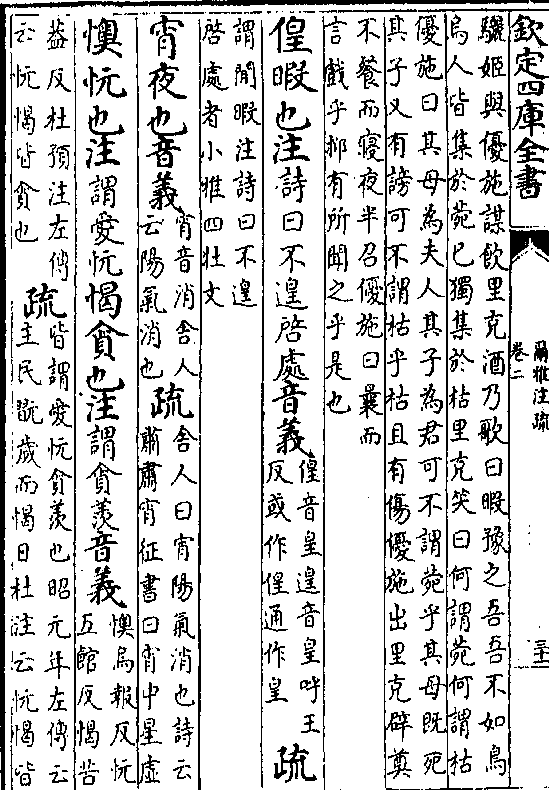 欽定四庫全書
爾雅注疏
卷二
驪姬與優施謀飲里克酒乃歌曰暇豫之吾吾不如鳥
烏人皆集於菀已獨集於枯里克笑曰何謂菀何謂枯
優施曰其母為夫人其子為君可不謂菀乎其母既死
其子又有謗可不謂枯乎枯且有傷優施出里克辟奠
不餐而寢夜半召優施曰曩而
言戲乎抑有所聞之乎是也
偟暇也注詩曰不遑啓處音義
偟音皇遑音皇呼王
反或作偟通作皇
疏
謂閒暇注詩曰不遑
啓處者小雅四牡文
宵夜也音義
宵音消舍人
云陽氣消也
疏
舍人曰宵陽氣消也詩云
肅肅宵征書曰宵中星虛
懊忨也注謂愛忨愒貪也注謂貪羨音義
懊烏報反忨
五館反愒苦
葢反杜預注左傳
云忨愒皆貪也
疏
皆謂愛忨貪羨也昭元年左傳云
主民翫歲而愒日杜注云忨愒皆